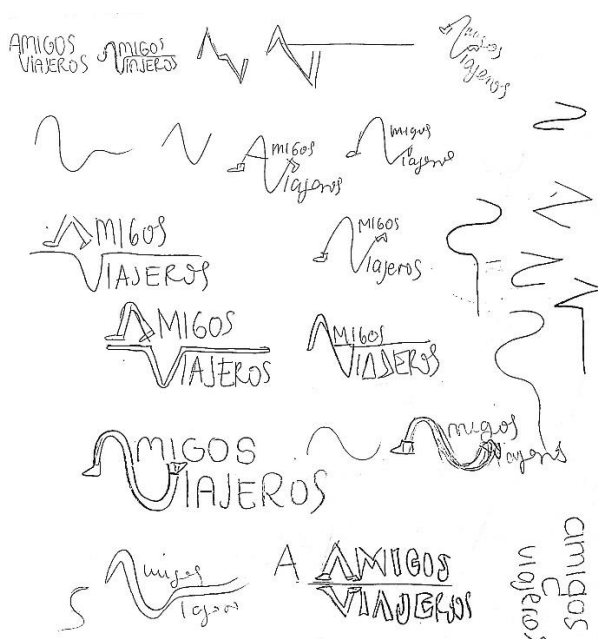 AMIGOS
VIAJEROS
AMIGOS
VIAJEROS
Amigos
Viajeros
AMIGOS
Viajeros
Amigos
Viajeros
AMIGOS
VIAJEROS
AMIGOS
Viajeros
AMIGOS
VIAJEROS
AMIGOS
VIAJEROS
AMIGOS
VIAJEROS
Amigos
Viajeros
S
Amigos
A
AMIGOS
VIAJEROS
amigos
viajeros